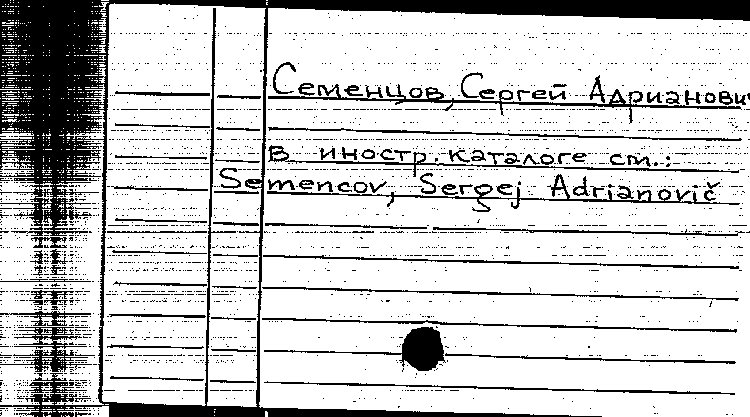 Семенцов, Сергей Адрианович
в иностр. каталоге см.:
Semencov, Sergej Adrianovič